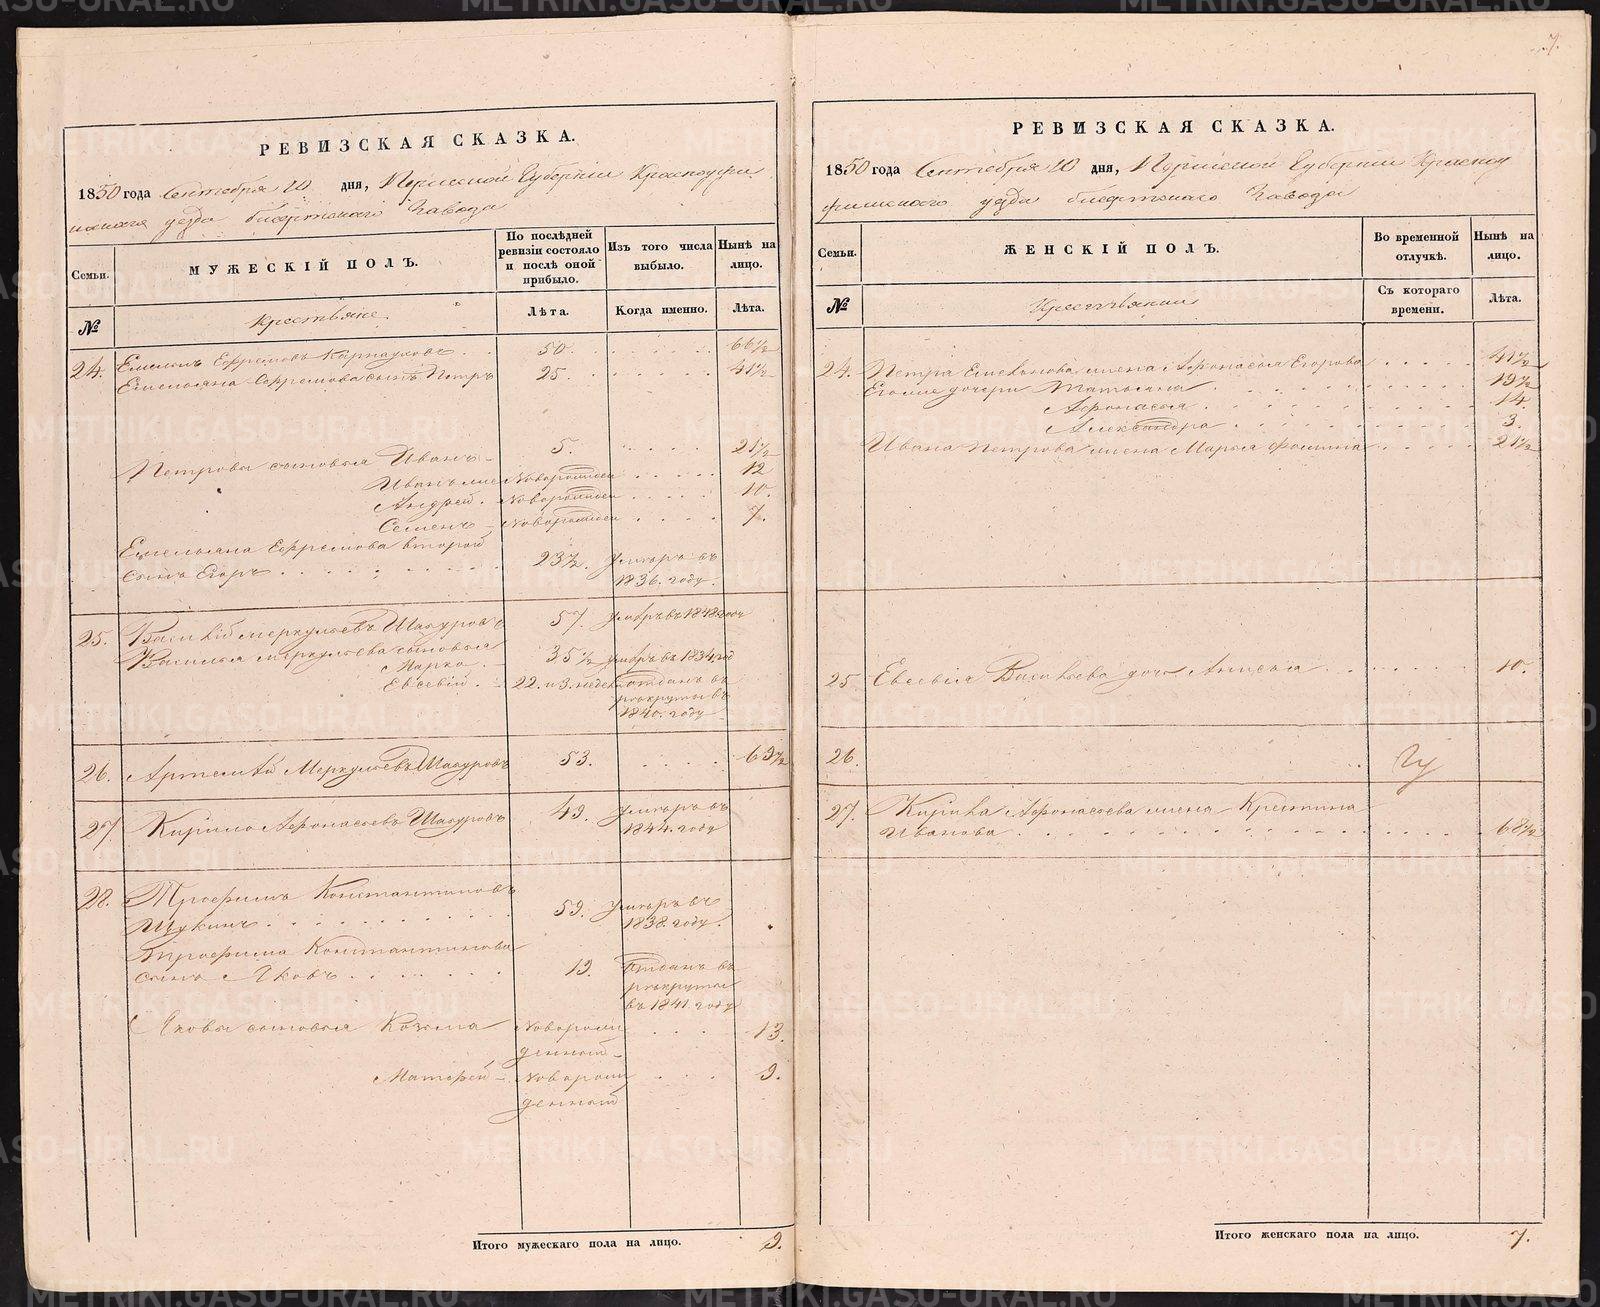 РЕВИЗСКАЯ СКАЗКА.
1850 года Сентября 20 дня, Пермской Губерніи Красноуфи
мскаго уезда бисертскаго Завода
Семьи.
МУЖЕСКІЙ ПОЛЪ.
По послѣдней ревизіи состояло и послѣ оной прибыло.
Изъ того числа выбыло.
Нынѣ на лицо.
№
Крестьяне
Лѣта.
Когда именно.
Лѣта.
24. Емельянъ Ефремовъ Карнауховъ 50. 66 1/2
Емельяна Ефремова сынъ Петръ 25. 41 1/2
Петровы сыновья Иванъ 5. 21 1/2
Иванъ Новорожден 12
Андрей Новорожден 10.
Семенъ Новорожден 7.
Емельяна Ефремова второй
сынъ Егоръ 23 1/2. умеръ въ
1836. году.
25. Василій Меркульевъ Шашуровъ 57. умеръ въ 1848 году
Василья Меркульева сыновья
Марко 35 1/2 умеръ въ 1834 год
Евсевій 22. и 3. недел отданъ въ
рекруты въ
1840. году
26. Артемій Меркульевъ Шашуровъ 53. 69 1/2
27. Кирило Афонасьевъ Шашуровъ 49. умеръ въ
1844. году
28. Трофимъ Константиновъ
Щукинъ 59. умеръ въ
1838. году.
Трофима Константинова
сынъ Яковъ 19. отданъ въ
рекруты
въ 1841. году
Яковы сыновья Козьма Новорож 13.
денный
Матфей Новорож 9.
денный
Итого мужескаго пола на лицо. 9.
7.
РЕВИЗСКАЯ СКАЗКА.
1850 года Сентября 20 дня, Пермской Губерніи Красноу
фимскаго уезда бисертскаго Завода
Семьи.
ЖЕНСКІЙ ПОЛЪ.
Во временной отлучкѣ.
Нынѣ на лицо.
№
Крестьянки
Съ котораго времени.
Лѣта.
24. Петра Емельянова жена Афонасья Егорова 41 1/2
Его же дочери Татьяна 19 1/2
Афонасья 14.
Александра 3.
Ивана Петрова жена Марья Фомина 21 1/2
25 Евсевія Васильева дочь Анисья 10.
26.
27. Кирила Афонасьева жена Крестина
Иванова 68 1/2
Итого женскаго пола на лицо. 7.
METRIKI.GASO-URAL.RU